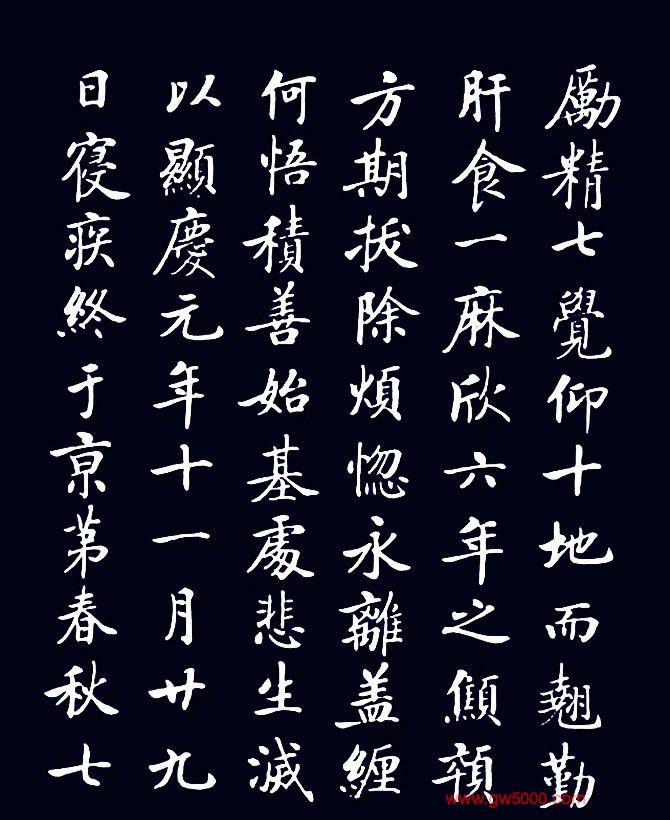 励精七覺仰十地而翹勤
旰食一麻欣六年之顦顇
方期拔除煩惚永離盖纏
何悟積善始基處悲生滅
以顯慶元年十一月廿九
日寑疾終于京第春秋七
www.gw5000.com